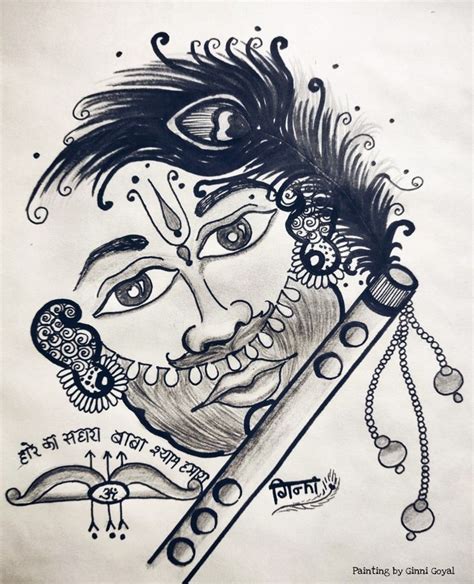 हारे का सहारा बाबा श्याम हमारा
ॐ
गिन्नी
Painting by Ginni Goyal